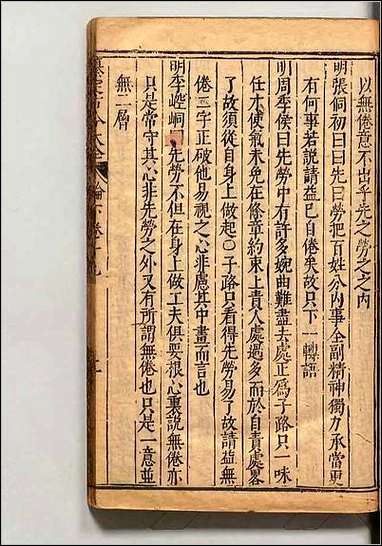 以無倦意不出乎先之勞之之內
明張侗初曰曰先曰勞把百姓分內事全副精神獨力承當更
有何事若說請益已自倦矣故只下一轉語
明周季侯曰先勞中有許多婉曲難盡去處正為子路只一味
任本使氣未免在條章約束上責人處過多而於自責處畧
了故須從自身上做起○子路只看得先勞易了故請益無
倦二字正破他易視之心非慮其中畫而言也
明李崆峒曰先勞不但在身上做工夫俱要根心裏說無倦亦
只是常守其心非先勞之外又有所謂無倦也只是一意並
無二層